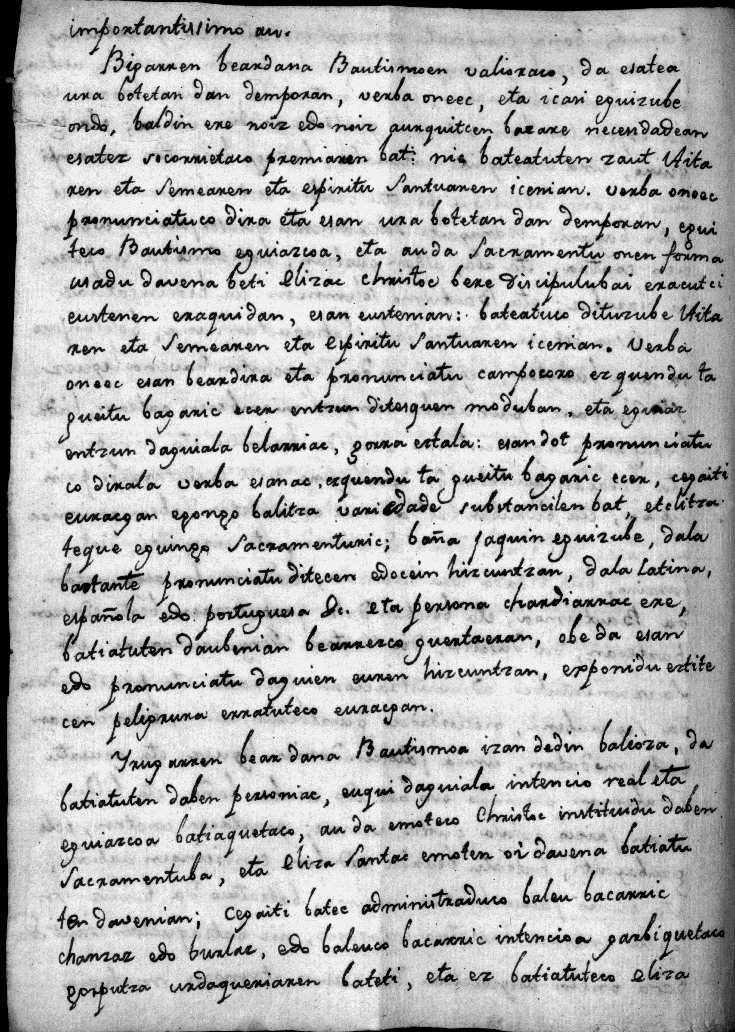 importantissimo au.
Bigarren beardana Bautismoen valioraco, da esatea
ura botetan dan demporan, verba oneec, eta icasi eguizube
ondo, baldin ere noiz edo noiz aurquitcen bazare necesidadean
esatez socorrietaco premiaren bat: nic bateatuten zaut Aita
ren eta Semearen eta espiritu Santuaren icenian. verba oneec
pronunciatuco dira eta esan ura botetan dan demporan, egui
teco Bautismo eguiazcoa, eta au da Sacramentu onen forma
usadu davena beti Elizac Christoc bere Discipulubai eracutci
eustenen eraquidan, esan eustenian: bateatuco dituzube Aita
ren eta Semearen eta Espiritu Santuaren icenian. Verba
oneec esan beardira eta pronunciatu campocoro ez quendu ta
gueitu bagaric ecer entzun ditesquen moduban, eta eguiaz
entzun daguiala belarriac, gorra eztala: esan dot pronunciatu
co dirala verba esanac, ezquendu ta gueitu bagaric ecer, cegaiti
euracgan egongo balitza variedade substancilen bat, etzlitza
teque eguingo Sacramenturic; baña jaquin eguizube, dala
bastante pronunciatu ditecen edocein hizcuntzan, dala Latina,
española edo portuguesa &c. Eta persona chardiarrac ere,
batiatuten daubenian bearrezco guertaeran, obe da esan
edo pronunciatu daguien euren hizcuntzan, exponidu eztite
cen peligrura erratuteco euracgan.
Yrugarren bear dana Bautismoa izan dedin balioza, da
batiatuten daben personiac, euqui daguiala intencio real eta
eguiazcoa batiaquetaco, au da emoteco Christoc instituidu daben
Sacramentuba, eta Eliza Santac emoten oi davena batiatu
ten davenian; cegaiti batec administraduco baleu bacarric
chanzaz edo burlaz, edo baleuco bacarric intencioa garbiquetaco
gorputza urdaqueriaren bateti, eta ez batiatuteco Eliza